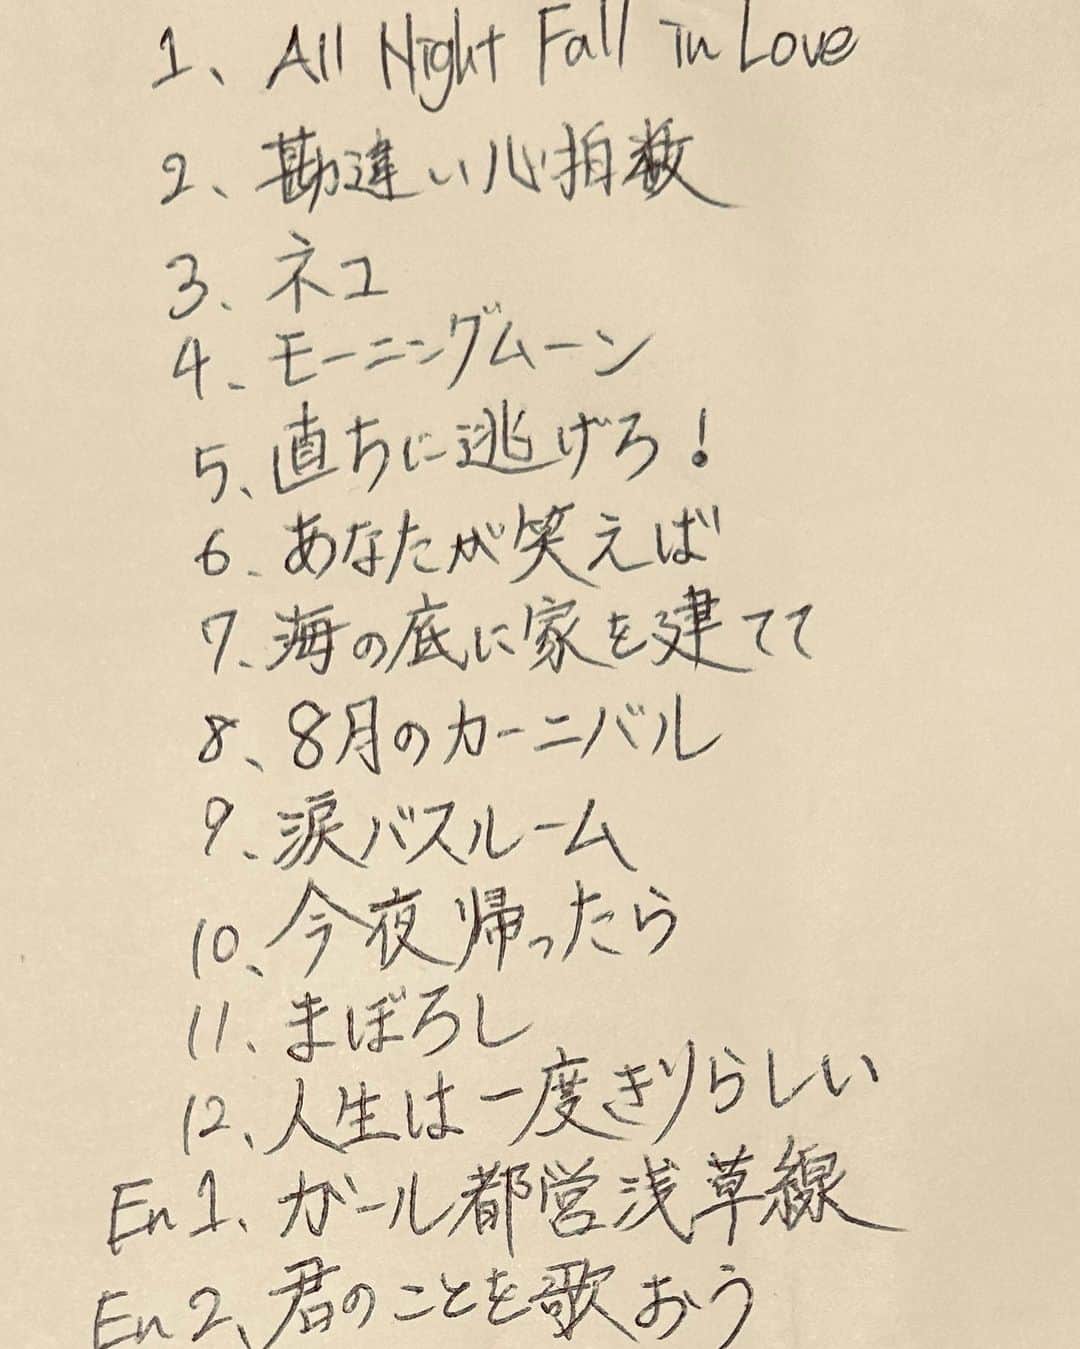 1、All Night Fall in Love
2、勘違い心拍数
3、ネコ
4、モーニングムーン
5、直ちに逃げろ!
6、あなたが笑えば
7、海の底に家を建てて
8、8月のカーニバル
9、涙バスルーム
10、今夜帰ったら
11、まぼろし
12、人生は一度きりらしい
En1、ガール都営浅草線
En2、君のことを歌おう